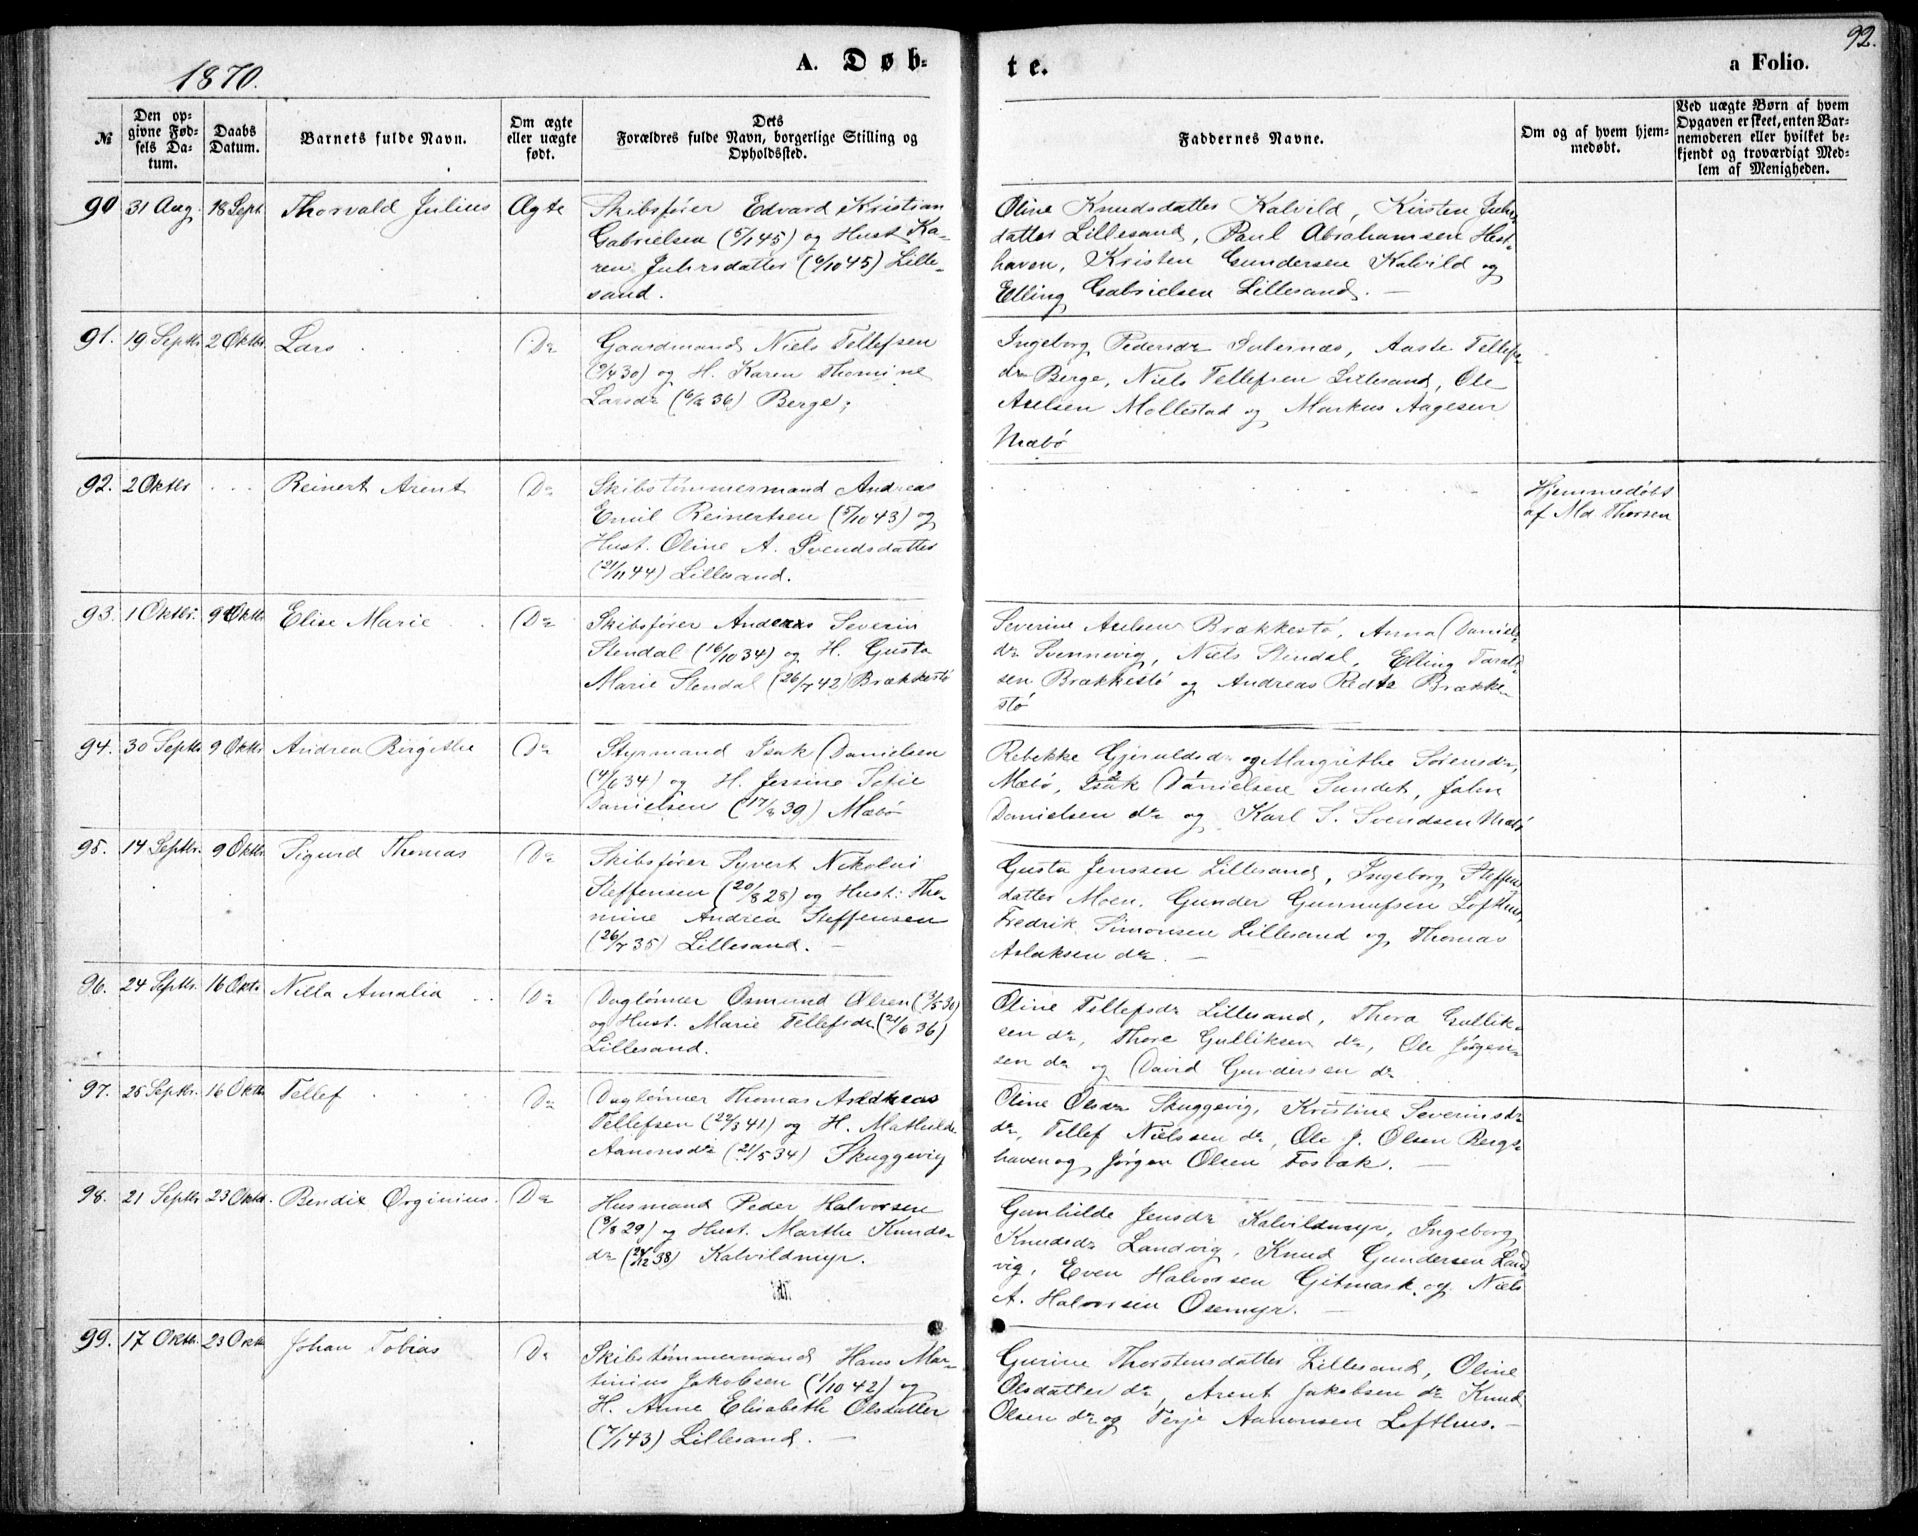 1870.
A. Døb-
te.
92.
a Folio.
№
Den op-
givne Fød-
sels Da-
tum.
Daabs
Datum.
Barnets fulde Navn.
Om ægte
eller uægte
født.
Dets
Forældres fulde Navn, borgerlige Stilling og
Opholdssted.
Faddernes Navne.
Om og af hvem hjem-
medøbt.
Ved uægte Børn af hvem
Opgaven er skeet, enten Bar-
nemoderen eller hvilket be-
kjendt og troværdigt Med-
lem af Menigheden.
90 31 Aug. 18 Sept. Thorvald Julius Ægte
Skibsfører Edvard Kristian
Gabrielsen (5/1 45) og Hust. Ka-
ren Juhrsdatter (6/10 45) Lille-
sand.
Oline Knudsdatter Kalvild, Kirsten Juhrs-
datter Lillesand, Paul Abrahamsen Hest-
haven, Kristen Gundersen Kalvild og
Elling Gabrielsen Lillesand. —
91. 19 Septbr. 2 Oktbr. Lars Do
Gaardmand Niels Tellefsen
og H. Karen Thomine
Larsdr Berge;
Ingeborg Pedersdr Aaste Tellefs-
dr Berge, Niels Tellefsen Lillesand, Ole
Axelsen Mollestad og Markus Aagesen
Mæbø
92. 2 Oktbr. . . . Reinert Arent Do
Skibstømmermand Andreas
Emil Reinertsen (5/10 43) og
Hust. Oline A. Svendsdatter
(21/11 44) Lillesand.
Hjemmedøbt
af Md Thorsen
93. 1 Oktbr. 9 Oktbr. Elise Marie Do
Skibsfører Andreas Severin
Stendal (16/10 34) og H. Gusta
Marie Stendal (26/7 42) Brækkestø
Severine Axelsen Brækkestø, Anna Daniels-
dr Svennevig, Niels Stendal, Elling Tarald-
sen Brækkestø og Andreas Brække-
stø
94. 30 Septbr. 9 Oktbr. Andrea Birgithe Do
Styrmand Isak Danielsen
(4/6 34) og H. Jessine Sofie
Danielsen Mæbø
Rebekke Gjeruldsdr og Margrethe Sørensdr,
Mæbø, Isak Danielsen Sundet, John
Danielsen do og Karl S. Svendsen Mæbø
95. 14 Septbr. 9 Oktbr. Sigurd Thomas Do
Skibsfører Syvert Nikolai
Steffensen (20/8 28) og Hust. Tho-
mine Andrea Steffensen
(26/7 35) Lillesand. —
Gusta Jenssen Lillesand, Ingeborg Steffens-
datter Moen, Gunder Gunnufsen Lofthus,
Fredrik Simonsen Lillesand og Thomas
Aslaksen do. —
96. 24 Septbr. 16 Oktbr. Nilla Amalia Do
Daglønner Osmund Olsen
og Hust. Marie Tellefsdr (21/6 36)
Lillesand.
Oline Tellefsdr Lillesand, Thora Gullik-
sen do, Thore Gulliksen do, Ole Jørgen-
sen do og David Gundersen do
97. 25 Septbr. 16 Oktbr. Tellef Do
Daglønner Thomas Andreas
Tellefsen (22/3 41) og H. Mathilde
Aanonsdr (21/5 34) Skuggevig
Oline Olsdr Skuggevig, Kristine Severinsdr
do, Tellef Nielssen do, Ole J. Olsen Bergs-
haven og Jørgen Olsen Fosbæk. —
98. 21 Septbr. 23 Oktbr. Bendix Orginius. Do
Husmand Peder Halvorsen
(3/8 29) og Hust. Marthe Knuds-
dr (24/12 38) Kalvildmyr.
Gunhilde Jensdr Kalvildmyr, Ingeborg
Knudsdr Landvig, Knud Gundersen Land-
vig, Even Halvorsen Gitmark og Niels
A. Halvorsen Osemyr. —
99. 17 Oktbr. 23 Oktbr. Johan Tobias Do
Skibstømmermand Hans Mar-
tinius Jakobsen (1/10 42) og
H. Anne Elisabeth Olsdatter
(7/1 43) Lillesand. —
Gurine Thorstensdatter Lillesand, Oline
Olsdatter do, Arent Jakobsen do Knud
Olsen do og Terje Aanonsen Lofthus. —